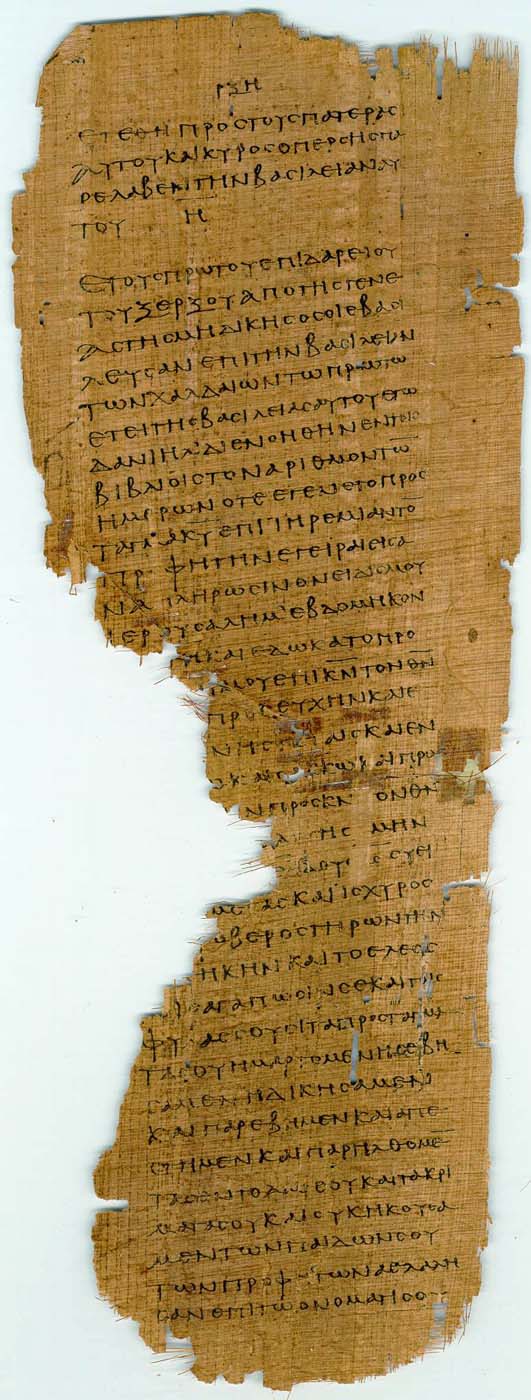 ΡΞΗ
ΕΤΕΘΗ ΠΡΟϹ ΤΟΥϹ ΠΑΤΕΡΑϹ
ΑΥΤΟΥ ΚΑΙ ΚΥΡΟϹ Ο ΠΕΡϹΗϹ ΠΑ
ΡΕΛΑΒΕΝ ΤΗΝ ΒΑϹΙΛΕΙΑΝ ΑΥ
ΤΟΥ Η̅
ΕΤΟΥϹ ΠΡΩΤΟΥ ΕΠΙ ΔΑΡΕΙΟΥ
ΤΟΥ ΞΕΡΞΟΥ ΑΠΟ ΤΗϹ ΓΕΝΕ
ΑϹ ΤΗϹ ΜΗΔΙΚΗϹ ΟϹΟΙ ΕΒΑϹΙ
ΛΕΥϹΑΝ ΕΠΙ ΤΗΝ ΒΑϹΙΛΕΙΑΝ
ΤΩΝ ΧΑΛΔΑΙΩΝ ΤΩ ΠΡΩΤΩ
ΕΤΕΙ ΤΗϹ ΒΑϹΙΛΕΙΑϹ ΑΥΤΟΥ ΕΓΩ
ΔΑΝΙΗΛ ΔΙΕΝΟΗΘΗΝ ΕΝ ΤΟΙϹ
ΒΙΒΛΟΙϹ ΤΟΝ ΑΡΙΘΜΟΝ ΤΩ̅
ΗΜΕΡΩΝ ΟΤΕ ΕΓΕΝΕΤΟ ΠΡΟϹ
ΤΑΓΜΑ Κ̅Υ̅ ΕΠΙ ΙΗΡΕΜΙΑΝ ΤΟ̅
ΠΡ ΦΗΤΗΝ ΕΓΕΙΡΑΙ ΕΙϹ Α
ΝΑ ΠΛΗΡΩϹΙΝ ΟΝΕΙΔΙϹΜΟΥ
ΙΕΡΟΥϹΑΛΗΜ ΕΒΔΟΜΗΚΟΝ
ΤΗ ΚΑΙ ΕΔΩΚΑ ΤΟ ΠΡΟ
ΠΟΝ ΜΟΥ ΕΠΙ Κ̅Ν̅ ΤΟΝ Θ̅Ν̅
ΠΡΟϹΕΥΧΗΝ ΚΑΙ Ε
ΝΗϹ ΑΙϹ ΚΑΙ ΕΝ
Ω ΚΑΙ ΠΡΟ
Ν ΠΡΟϹ Κ̅Ν̅ ΟΝ Θ̅Ν̅
ΜΗΝ
ϹΥ ΕΙ
ΑϹ ΚΑΙ ΙϹΧΥΡΟϹ
ΟΒΕΡΟϹ ΤΗΡΩΝ ΤΗΝ
ΗΚΗΝ ΚΑΙ ΤΟ ΕΛΕΟϹ
ΑΓΑΠΩϹΙΝ ϹΕ ΚΑΙ ΤΟΙϹ
ΦΥ ΑϹϹΟΥϹΙ ΤΑ ΠΡΟϹΤΑΓΜΑ
ΤΑ ϹΟΥ ΗΜΑΡΤΟΜΕΝ ΗϹΕΒΗ
ϹΑΜΕΝ ΗΔΙΚΗϹΑΜΕΝ
ΚΑΙ ΠΑΡΕΒΗΜΕΝ ΚΑΙ ΑΠΕ
ϹΤΗΜΕΝ ΚΑΙ ΠΑΡΗΛΘΟΜΕ̅
ΤΑϹ ΕΝΤΟΛΑϹ ϹΟΥ ΚΑΙ ΤΑ ΚΡΙ
ΜΑΤΑ ϹΟΥ ΚΑΙ ΟΥΚ ΗΚΟΥϹΑ
ΜΕΝ ΤΩΝ ΠΑΙΔΩΝ ϹΟΥ
ΤΩΝ ΠΡΟΦΗΤΩΝ Α ΕΛΑΛΗ
ϹΑΝ ΕΠΙ ΤΩ ΟΝΟΜΑΤΙ ϹΟΥ